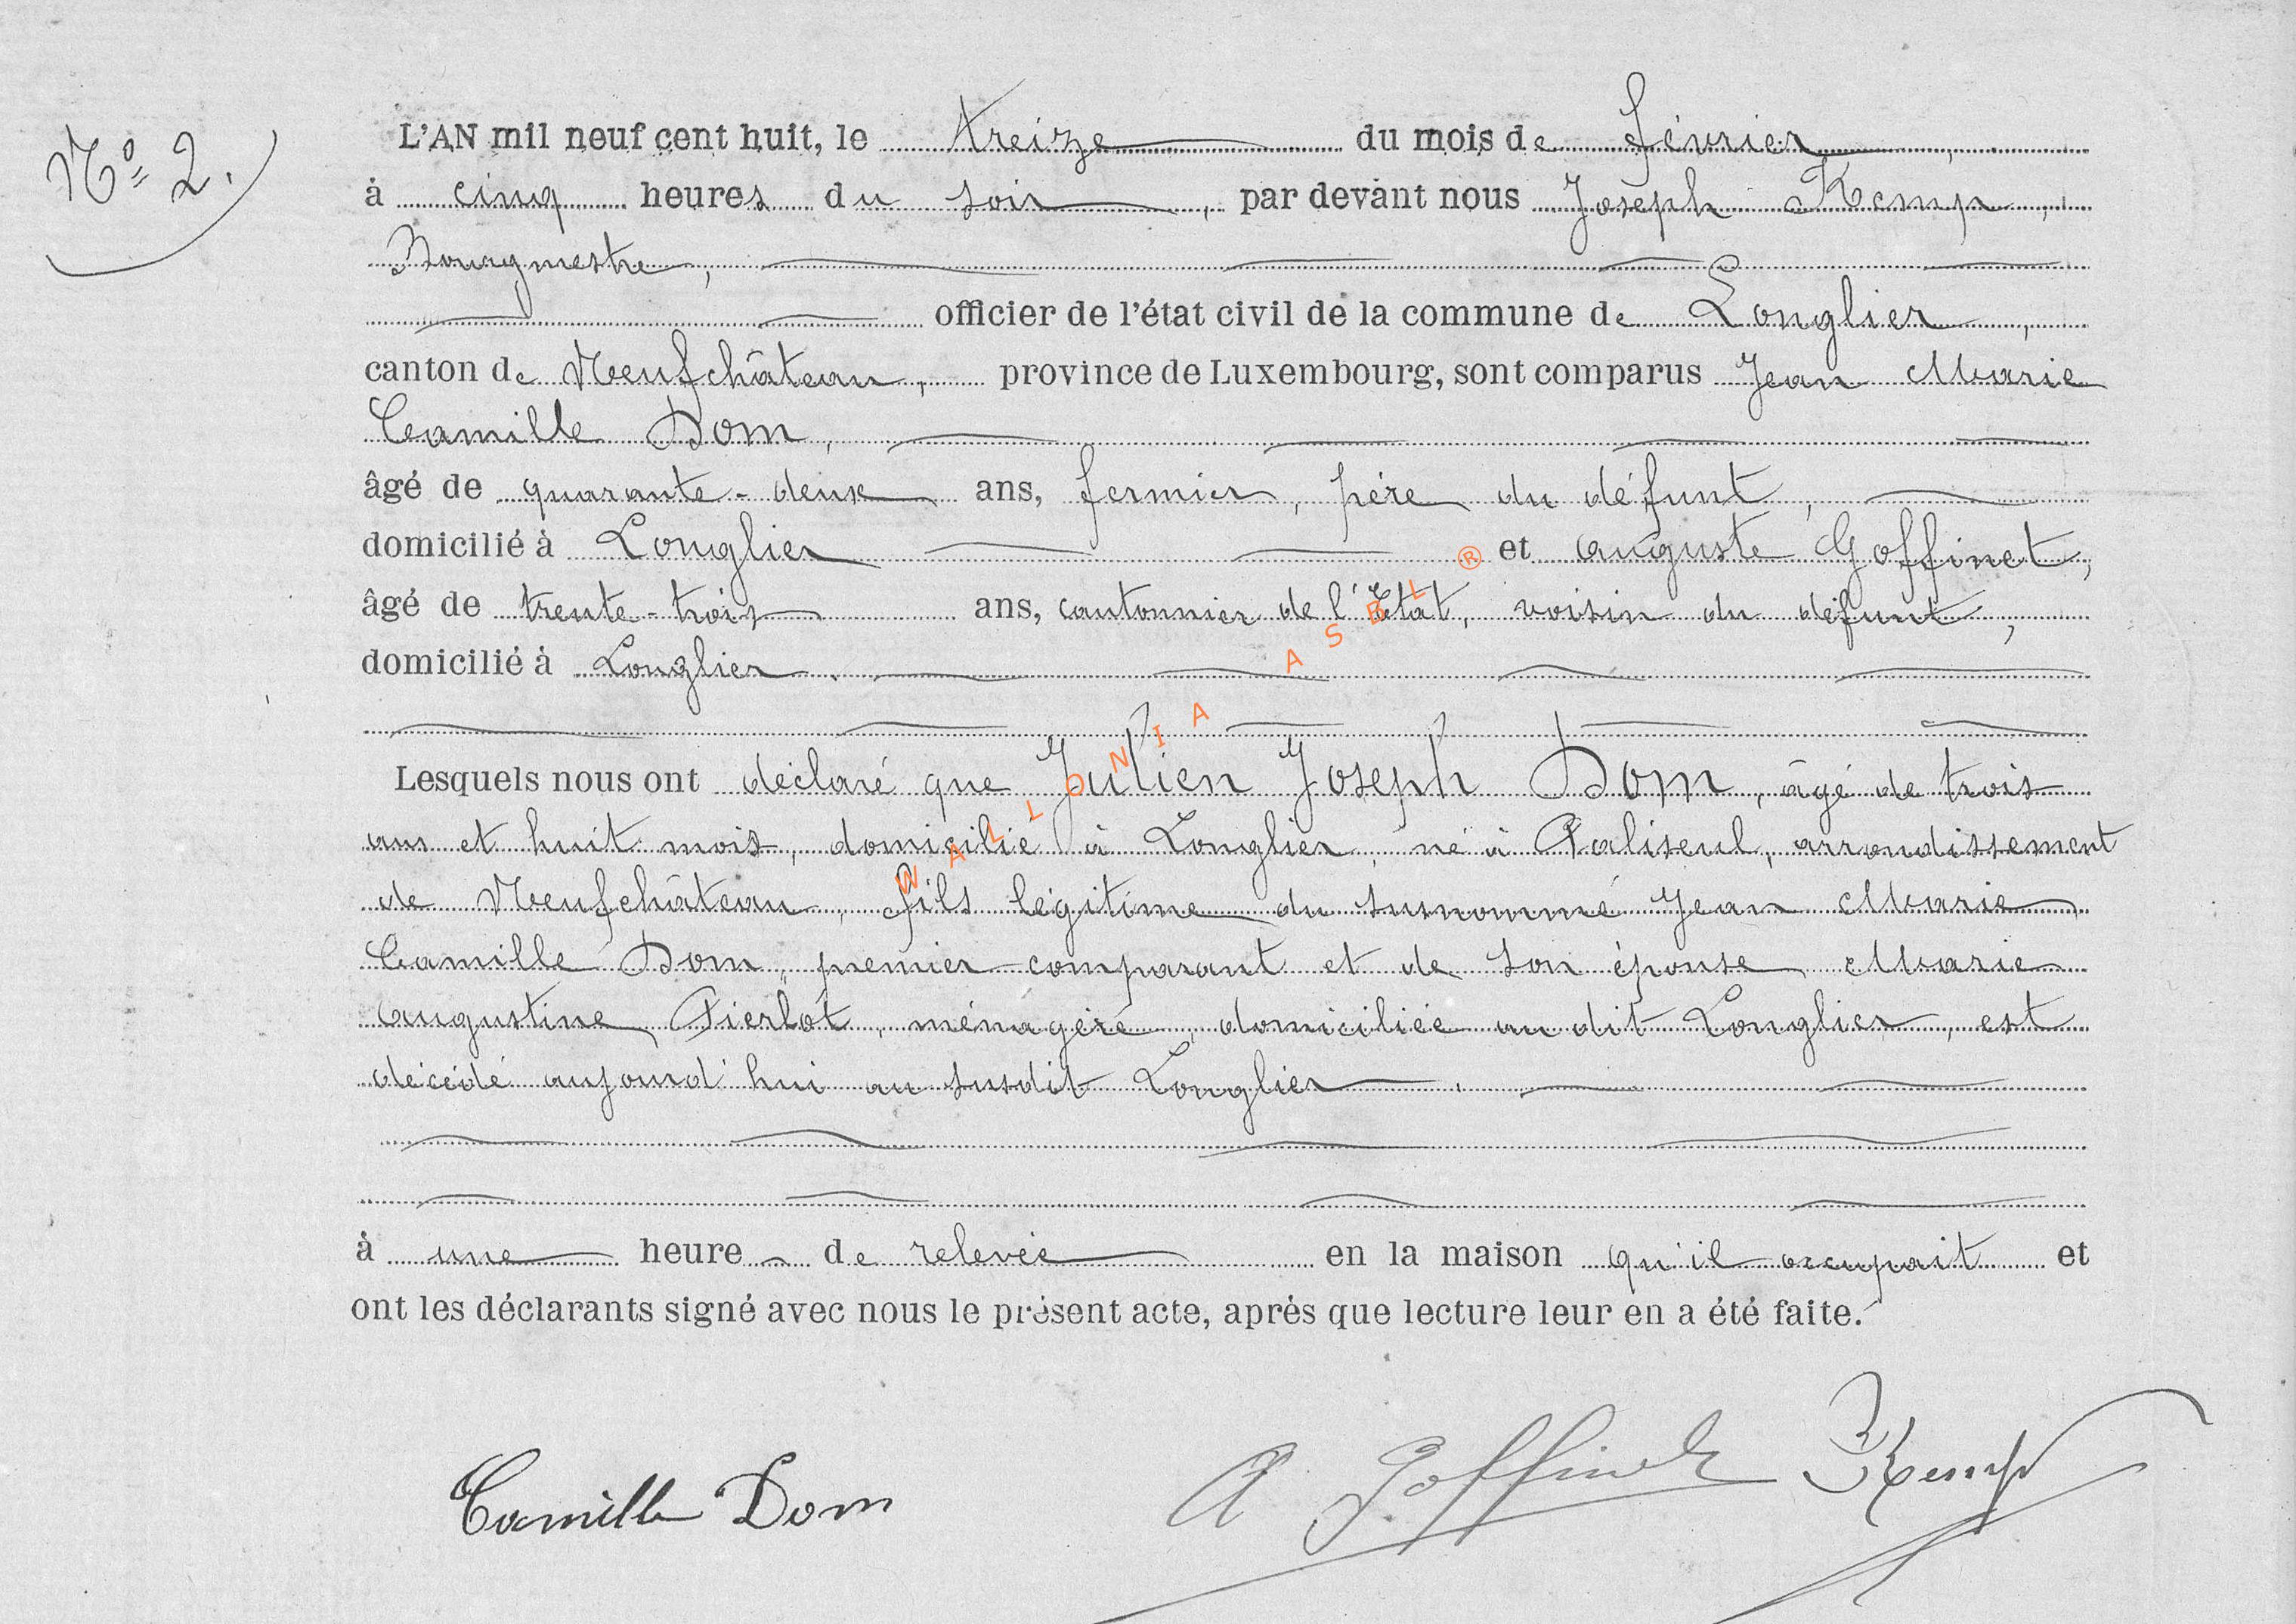 N° 2.
L'AN mil neuf cent huit, le treize du mois de février,
à cinq heures du soir, par devant nous Joseph Kemp,
Bourgmestre,
officier de l'état civil de la commune de Longlier,
canton de Neufchâteau, province de Luxembourg, sont comparus Jean Marie
Camille Dom,
âgé de quarante-deux ans, fermier, père du défunt,
domicilié à Longlier et Auguste Goffinet,
âgé de trente-trois ans, cantonnier de l'Etat, voisin du défunt,
domicilié à Longlier.
Lesquels nous ont déclaré que Julien Joseph Dom, âgé de trois
ans et huit mois, domicilié à Longlier, né à Paliseul, arrondissement
de Neufchâteau, fils légitime du susnommé Jean Marie
Camille Dom, premier comparant et de son épouse Marie
Augustine Pierlot, ménagère, domiciliée au dit Longlier, est
décédé aujourd'hui au susdit Longlier.
à une heure de relevée en la maison qu'il occupait et
ont les déclarants signé avec nous le présent acte, après que lecture leur en a été faite.
Camille Dom A Goffinet Kemp
WALLONIA ASBL ®